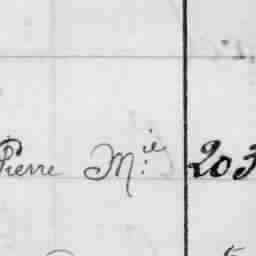 Pierre M.ie 203